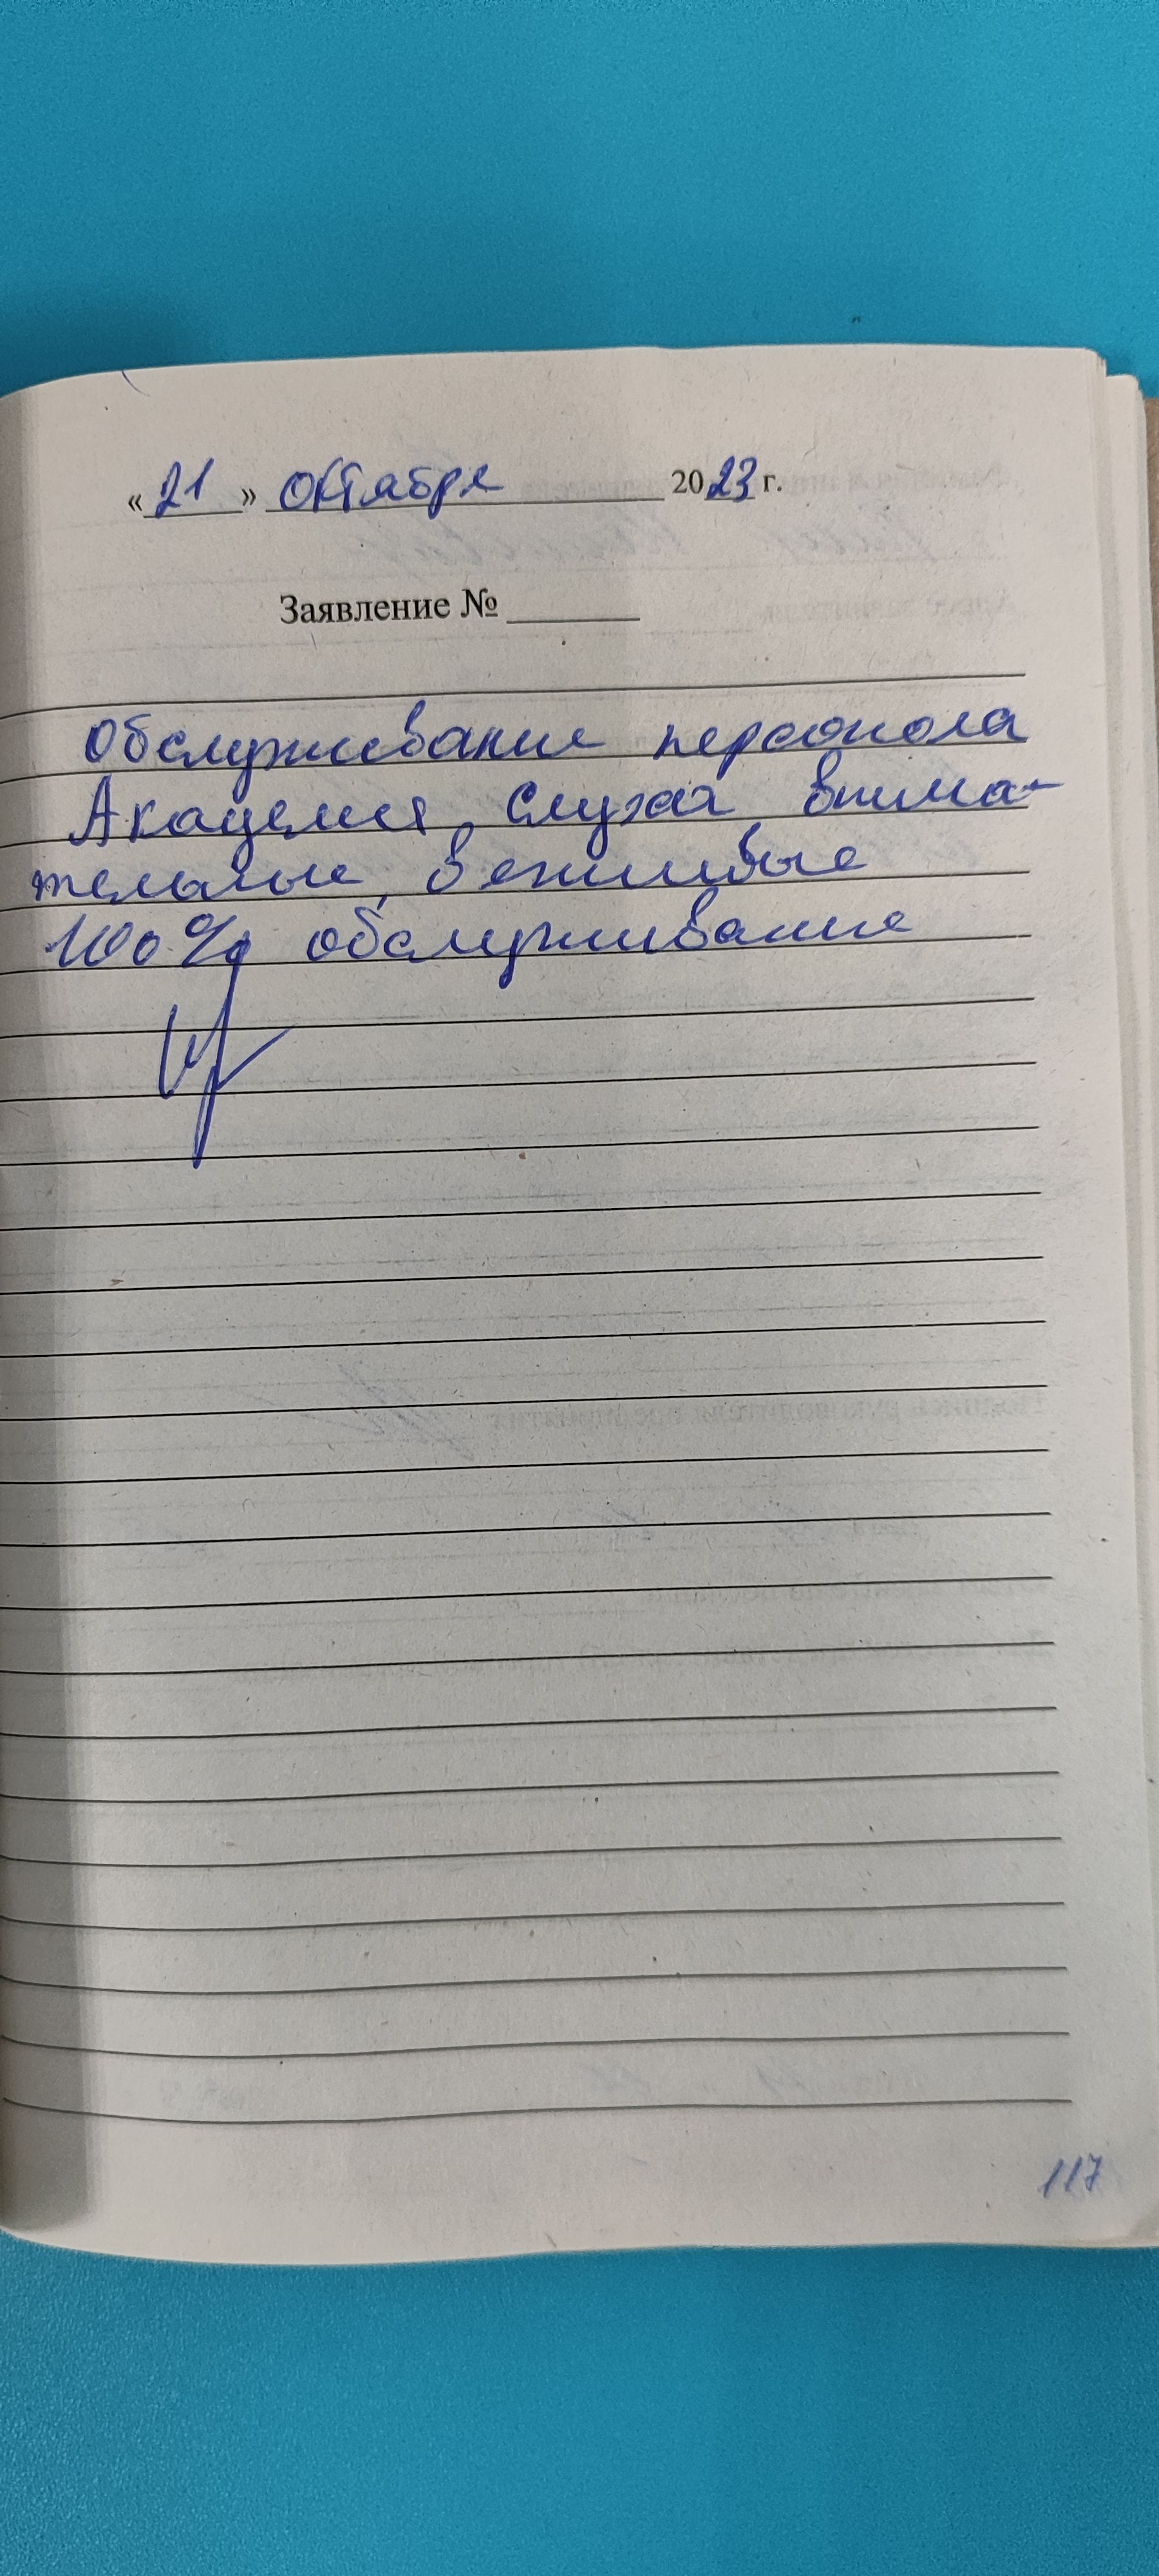 « 21 » октября 2023 г.
Заявление № ______
Обслуживание персонола
Академия Слуха внима-
тельные, вежливые
100% обслуживание
117